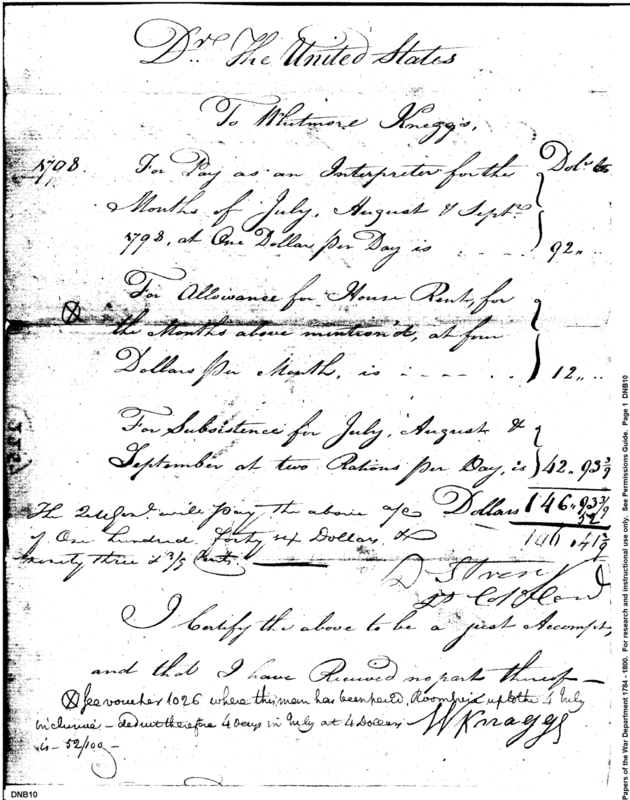 Dr. The United States
To Whitmore Knaggs,
1798. For Pay as an Interpreter for the Dols. Cts
Months of July, August & Septr.
1798, at One Dollar per Day is 92 " ..
For Allowance for House Rent, for
the Months above mention'd, at four
Dollars per Month, is 12 " ..
For Subsistence for July, August &
September at two Rations per Day, is 42 " 93 3/9
The will pay the above a/c Dollars 146 " 93 3/9
52
of One hundred forty six Dollars & 146 . 41 3/9
ninety three & 3/9 Cents.
D Strong
I Certify the above to be a just Accompt,
and that I have Received no part thereof —
⊗ See voucher 1026 where this man has been paid, Room upto the 4 July
inclusive – deduct therefore 4 Days in July at 4 Dollars W Knaggs
is – 52/100 –
DNB10
Papers of the War Department 1784 - 1800. For research and instructional use only. See Permissions Guide. Page 1 DNB10